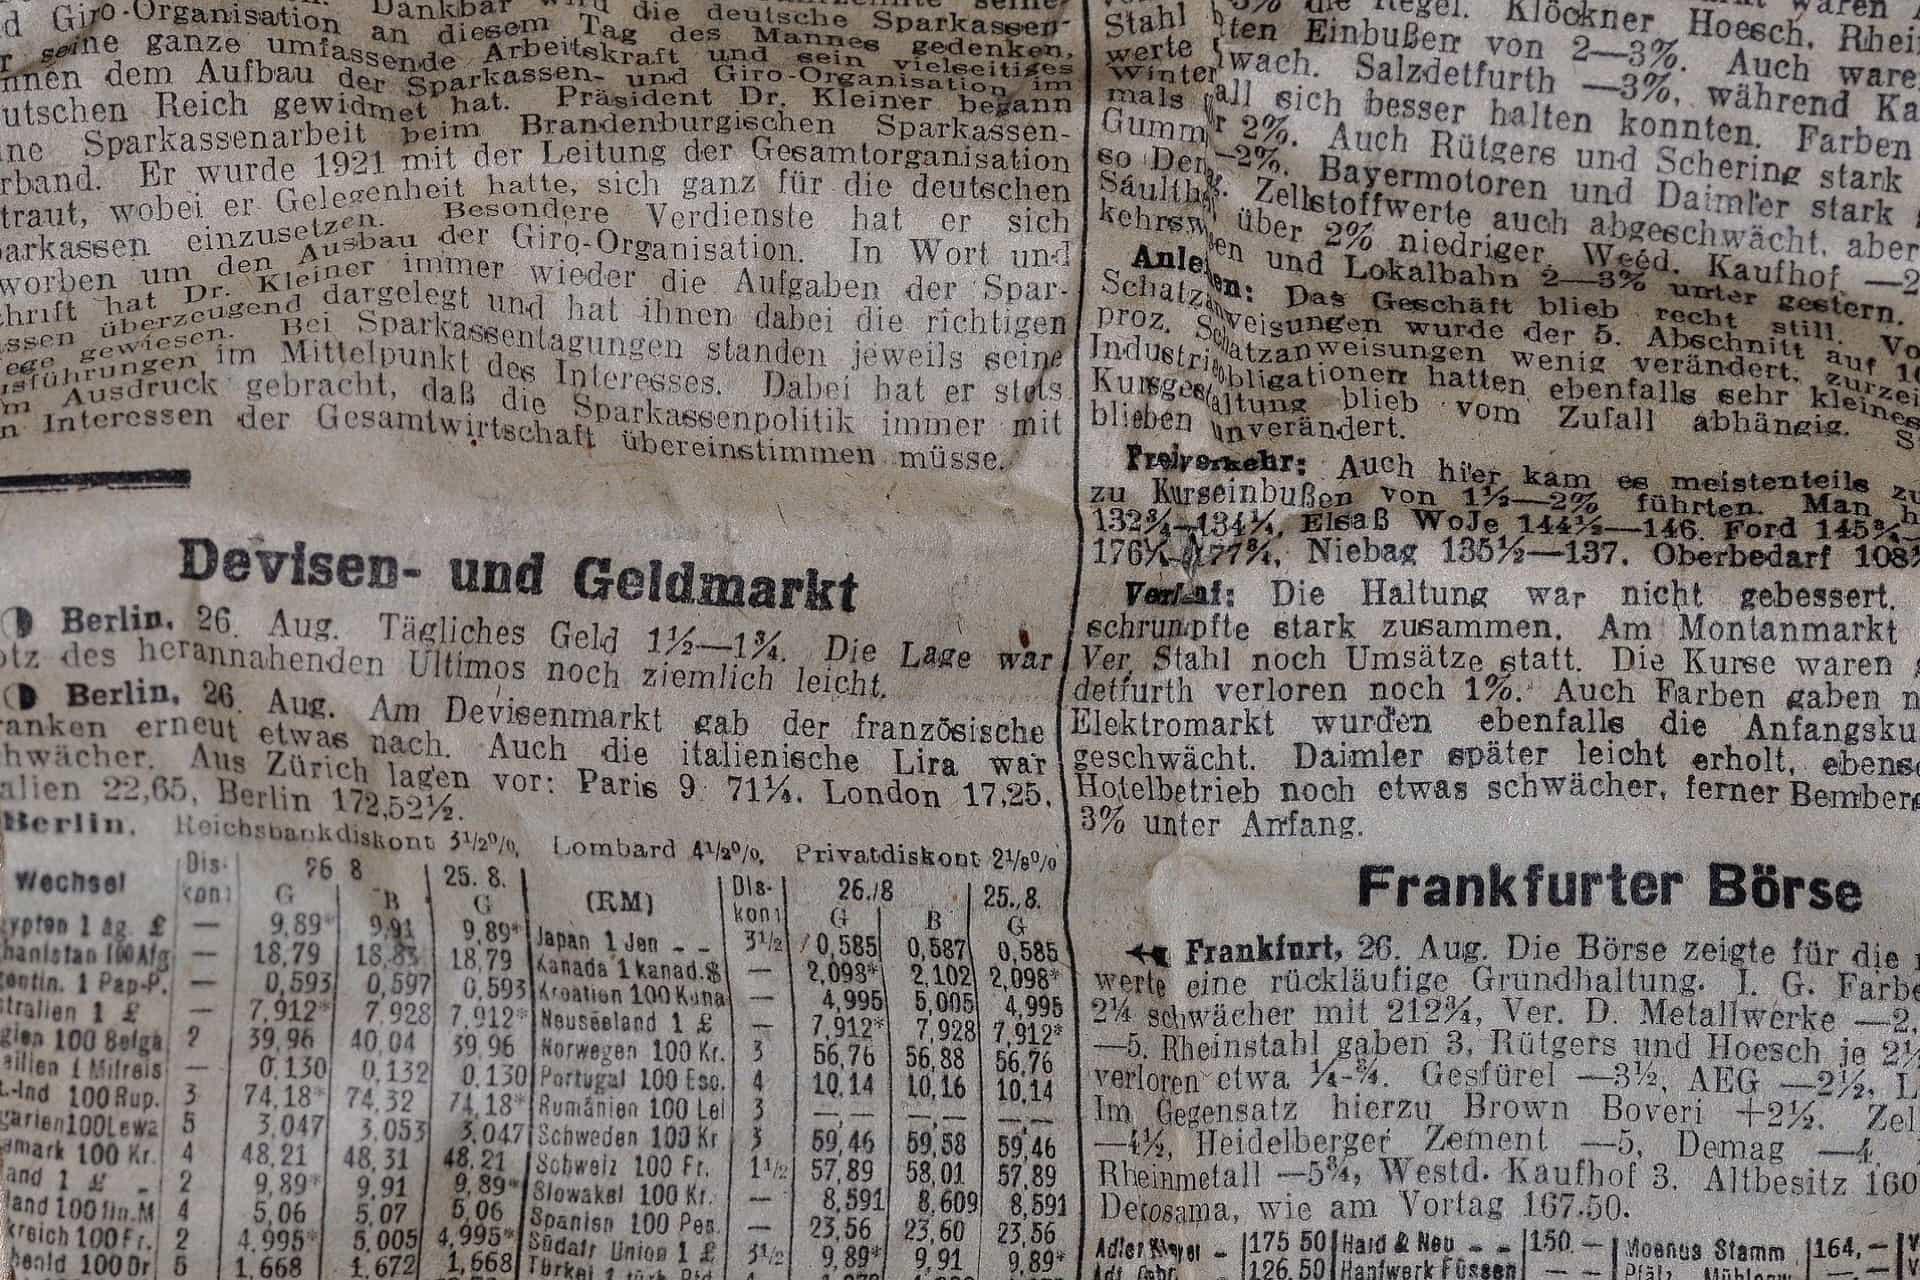 Giro-Organisation Dankbar wird die deutsche Sparkassen-
seine an diesem Tag des Mannes gedenken,
ganze umfassende Arbeitskraft und sein vielseitiges
dem Aufbau der Sparkassen- und Giro-Organisation im
utschen Reich gewidmet hat. Präsident Dr. Kleiner begann
ne Sparkassenarbeit beim Brandenburgischen Sparkassen-
rband. Er wurde 1921 mit der Leitung der Gesamtorganisation
traut, wobei er Gelegenheit hatte, sich ganz für die deutschen
arkassen einzusetzen. Besondere Verdienste hat er sich
worben um den Ausbau der Giro-Organisation. In Wort und
chrift hat Dr. Kleiner immer wieder die Aufgaben der Spar-
ssen überzeugend dargelegt und hat ihnen dabei die richtigen
ege gewiesen. Bei Sparkassentagungen standen jeweils seine
usführungen im Mittelpunkt des Interesses. Dabei hat er stets
m Ausdruck gebracht, daß die Sparkassenpolitik immer mit
n Interessen der Gesamtwirtschaft übereinstimmen müsse.
Devisen- und Geldmarkt
Berlin, 26. Aug. Tägliches Geld 1½—1¾. Die Lage war
otz des herannahenden Ultimos noch ziemlich leicht.
Berlin, 26. Aug. Am Devisenmarkt gab der französische
ranken erneut etwas nach. Auch die italienische Lira war
hwächer. Aus Zürich lagen vor: Paris 9 71¼. London 17,25,
alien 22,65, Berlin 172,52½.
Berlin. Reichsbankdiskont 3½%, Lombard 4½%, Privatdiskont 2⅛%
Wechsel Dis- 26 8 25. 8. (RM) Dis- 26./8 25., 8.
kont G B G kont G B G
ypten 1 äg. £ — 9,89* 9,91 9,89* Japan 1 Jen - - 3½ 0,585 0,587 0,585
hanistan 100 Afg — 18,79 18,83 18,79 Kanada 1 kanad.$ — 2,098* 2,102 2,098*
gentin. 1 Pap-P. — 0,593 0,597 0,593 Kroatien 100 Kuna — 4,995 5,005 4,995
stralien 1 £ — 7,912* 7.928 7,912* Neuseeland 1 £ — 7,912* 7,928 7,912*
gien 100 Belga 2 39,96 40,04 39,96 Norwegen 100 Kr. 3 56,76 56,88 56,76
silien 1 Milreis — 0,130 0,132 0,130 Portugal 100 Esc. 4 10,14 10,16 10,14
t.-Ind 100 Rup. 3 74,18* 74,32 74,18* Rumänien 100 Lei 3 —,— —,— —,—
garien 100 Lewa 5 3,047 3,053 3,047 Schweden 100 Kr 3 59,46 59,58 59,46
emark 100 Kr. 4 48,21 48,31 48,21 Schweiz 100 Fr. 1½ 57,89 58,01 57,89
land 1 £ - 2 9,89* 9,91 9,89* Slowakei 100 Kr. — 8,591 8,609 8,591
land 100 fin.M 4 5,06 5,07 5,06 Spanien 100 Pes. — 23,56 23,60 23,56
kreich 100 Fr. 2 4,995* 5,005 4,995* Südafr Union 1 £ 3½ 9,89* 9,91 9,89*
100 Dr 5 1,668 1,672 1,668 Türkei 1 türk. Pfd
Regel. Klöckner Hoesch, Rhei
Stahl ten Einbußen von 2—3%. Auch ware
werte wach. Salzdetfurth —3%, während Ka
Winter all sich besser halten konnten. Farben
mals 2%. Auch Rütgers und Schering stark
Gumm —2%. Bayermotoren und Daimler stark
so Zellstoffwerte auch abgeschwächt, aber
über 2% niedriger. Westd. Kaufhof —2
kehrsw en und Lokalbahn 2—3% unter gestern.
Anle en: Das Geschäft blieb recht still. Vo
Schatzanweisungen wurde der 5. Abschnitt auf
proz. Schatzanweisungen wenig verändert, zurzei
Industrieobligationen hatten ebenfalls sehr kleines
Kursgestaltung blieb vom Zufall abhängig. S
blieben unverändert.
Freiverkehr: Auch hier kam es meistenteils zu
zu Kurseinbußen von 1½—2% führten. Man h
132¾—134¼, Elsaß WoJe 144½—146. Ford 145¾—
176¼—177¾, Niebag 135½—137. Oberbedarf 108
Verlauf: Die Haltung war nicht gebessert.
schrumpfte stark zusammen. Am Montanmarkt
Ver. Stahl noch Umsätze statt. Die Kurse waren
detfurth verloren noch 1%. Auch Farben gaben n
Elektromarkt wurden ebenfalls die Anfangsku
geschwächt. Daimler später leicht erholt, ebens
Hotelbetrieb noch etwas schwächer, ferner Bember
3% unter Anfang.
Frankfurter Börse
Frankfurt, 26. Aug. Die Börse zeigte für die
werte eine rückläufige Grundhaltung. I. G. Farbe
2¼ schwächer mit 212¾, Ver. D. Metallwerke —2,
—5. Rheinstahl gaben 3, Rütgers und Hoesch je 2½
verloren etwa ¼-¾. Gesfürel —3½, AEG —2½, L
Im Gegensatz hierzu Brown Boveri +2½. Zel
—4½, Heidelberger Zement —5, Demag —4
Rheinmetall —5¾, Westd. Kaufhof 3. Altbesitz 160
Decosama, wie am Vortag 167.50.
Adler Kleyer - 175 50 Hard & Neu - - 150.— Moenus Stamm 164,—
126.50 Hanfwerk Füssen — —